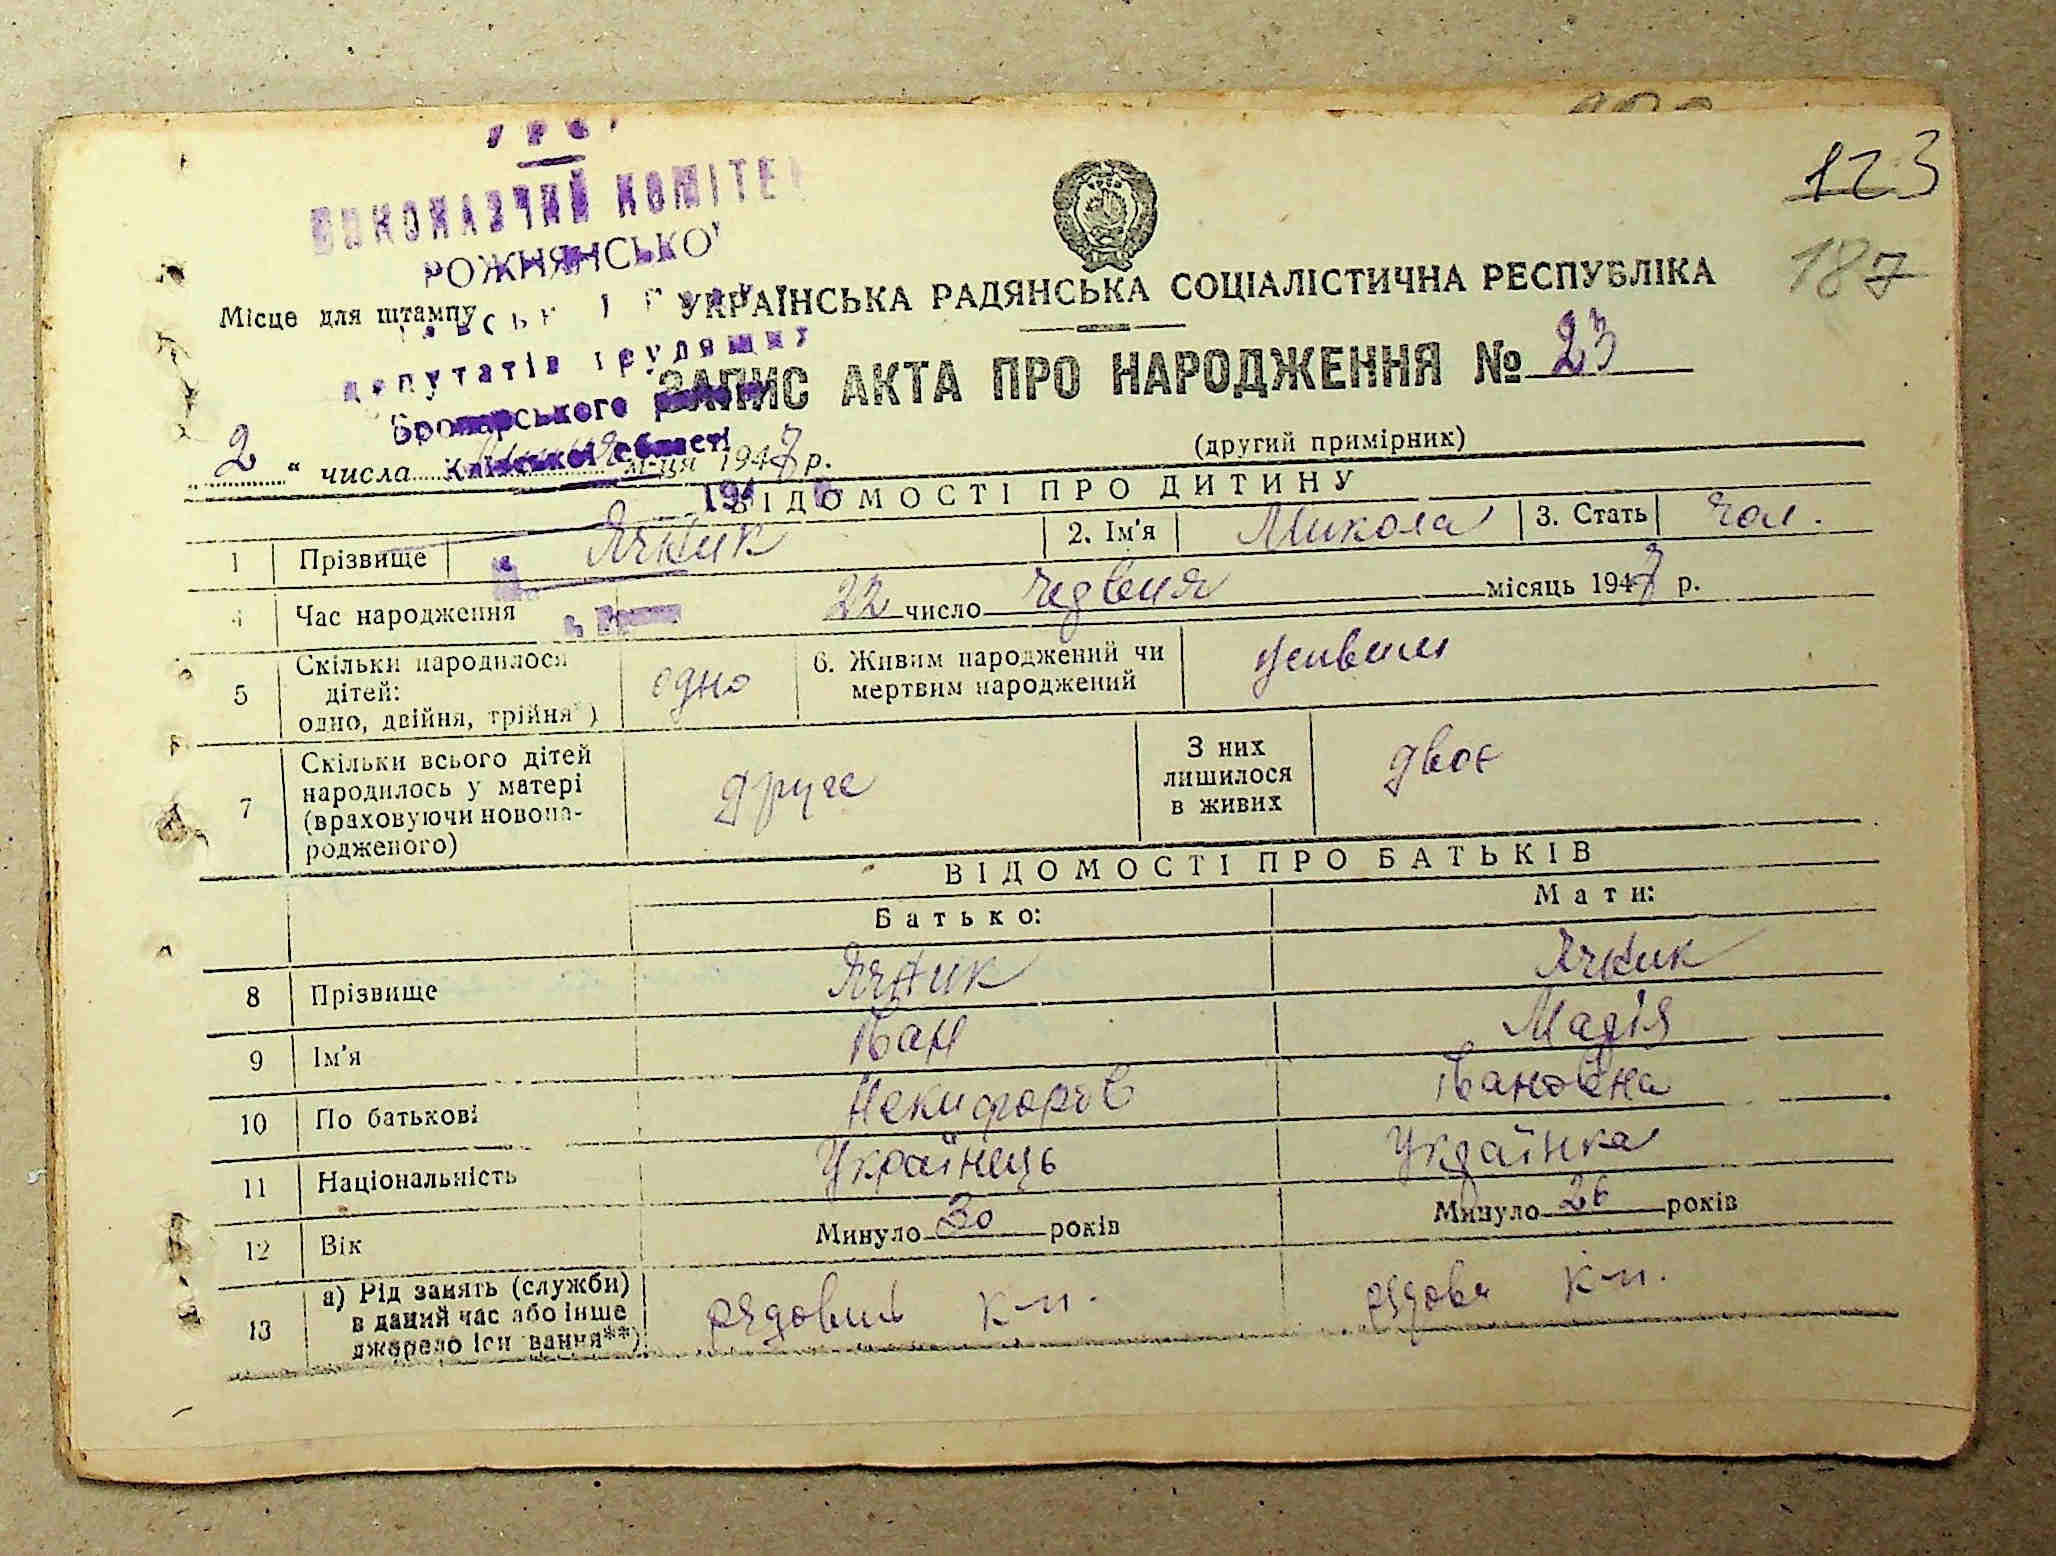 123
187
УРСР
ВИКОНАВЧИЙ КОМІТЕ
РОЖНЯНСЬКОЇ
Місце для штампу
УКРАЇНСЬКА РАДЯНСЬКА СОЦІАЛІСТИЧНА РЕСПУБЛІКА
депутатів трудящих
ЗАПИС АКТА ПРО НАРОДЖЕННЯ № 23
Броварського
Київської області
(другий примірник)
„2“ числа м-ця 1947 р.
ВІДОМОСТІ ПРО ДИТИНУ
1 Прізвище Ячник 2. Ім'я Микола 3. Стать чол.
4 Час народження 22 число червня місяць 1947 р.
5 Скільки народилося дітей: одно, двійня, трійня*) одно 6. Живим народжений чи мертвим народжений живим
7 Скільки всього дітей народилось у матері (враховуючи новона-родженого) друге З них лишилося в живих двоє
ВІДОМОСТІ ПРО БАТЬКІВ
Батько: Мати:
8 Прізвище Ячник Ячник
9 Ім'я Іван Марія
10 По батькові Некифоров Івановна
11 Національність Українець Українка
12 Вік Минуло 30 років Минуло 26 років
13 а) Рід занять (служби) в даний час або інше джерело існування**) рядовий к-п. рядова к-п.